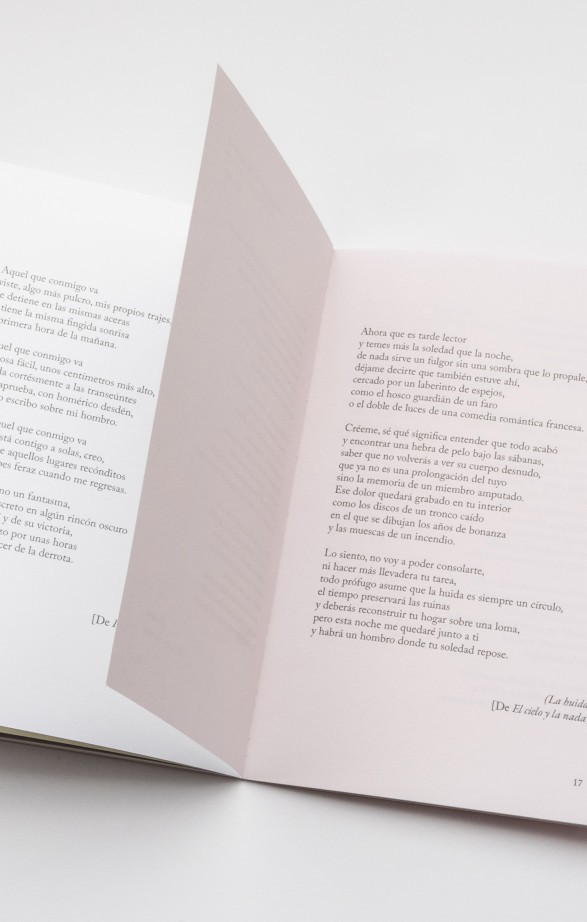 Aquel que conmigo va
viste, algo más pulcro, mis propios trajes,
se detiene en las mismas aceras
tiene la misma fingida sonrisa
primera hora de la mañana.
que conmigo va
fácil, unos centímetros más alto,
cortésmente a las transeúntes
aprueba, con homérico desdén,
escribo sobre mi hombro.
que conmigo va
está contigo a solas, creo,
aquellos lugares recónditos
feraz cuando me regresas.
un fantasma,
en algún rincón oscuro
y de su victoria,
por unas horas
de la derrota.
[De
Ahora que es tarde lector
y temes más la soledad que la noche,
de nada sirve un fulgor sin una sombra que lo propale,
déjame decirte que también estuve ahí,
cercado por un laberinto de espejos,
como el hosco guardián de un faro
o el doble de luces de una comedia romántica francesa.
Créeme, sé qué significa entender que todo acabó
y encontrar una hebra de pelo bajo las sábanas,
saber que no volverás a ver su cuerpo desnudo,
que ya no es una prolongación del tuyo
sino la memoria de un miembro amputado.
Ese dolor quedará grabado en tu interior
como los discos de un tronco caído
en el que se dibujan los años de bonanza
y las muescas de un incendio.
Lo siento, no voy a poder consolarte,
ni hacer más llevadera tu tarea,
todo prófugo asume que la huida es siempre un círculo,
el tiempo preservará las ruinas
y deberás reconstruir tu hogar sobre una loma,
pero esta noche me quedaré junto a ti
y habrá un hombro donde tu soledad repose.
(La huida
[De El cielo y la nada
17